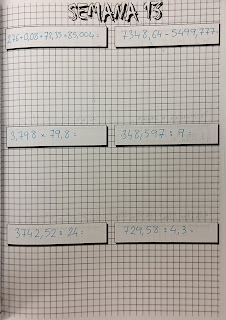 SEMANA 13
276+0,08+72,35+85,004=
7348,64-5499,777
3,798 x 79,8=
348,597 : 9=
3742,52 : 24=
729,58 : 4,3=